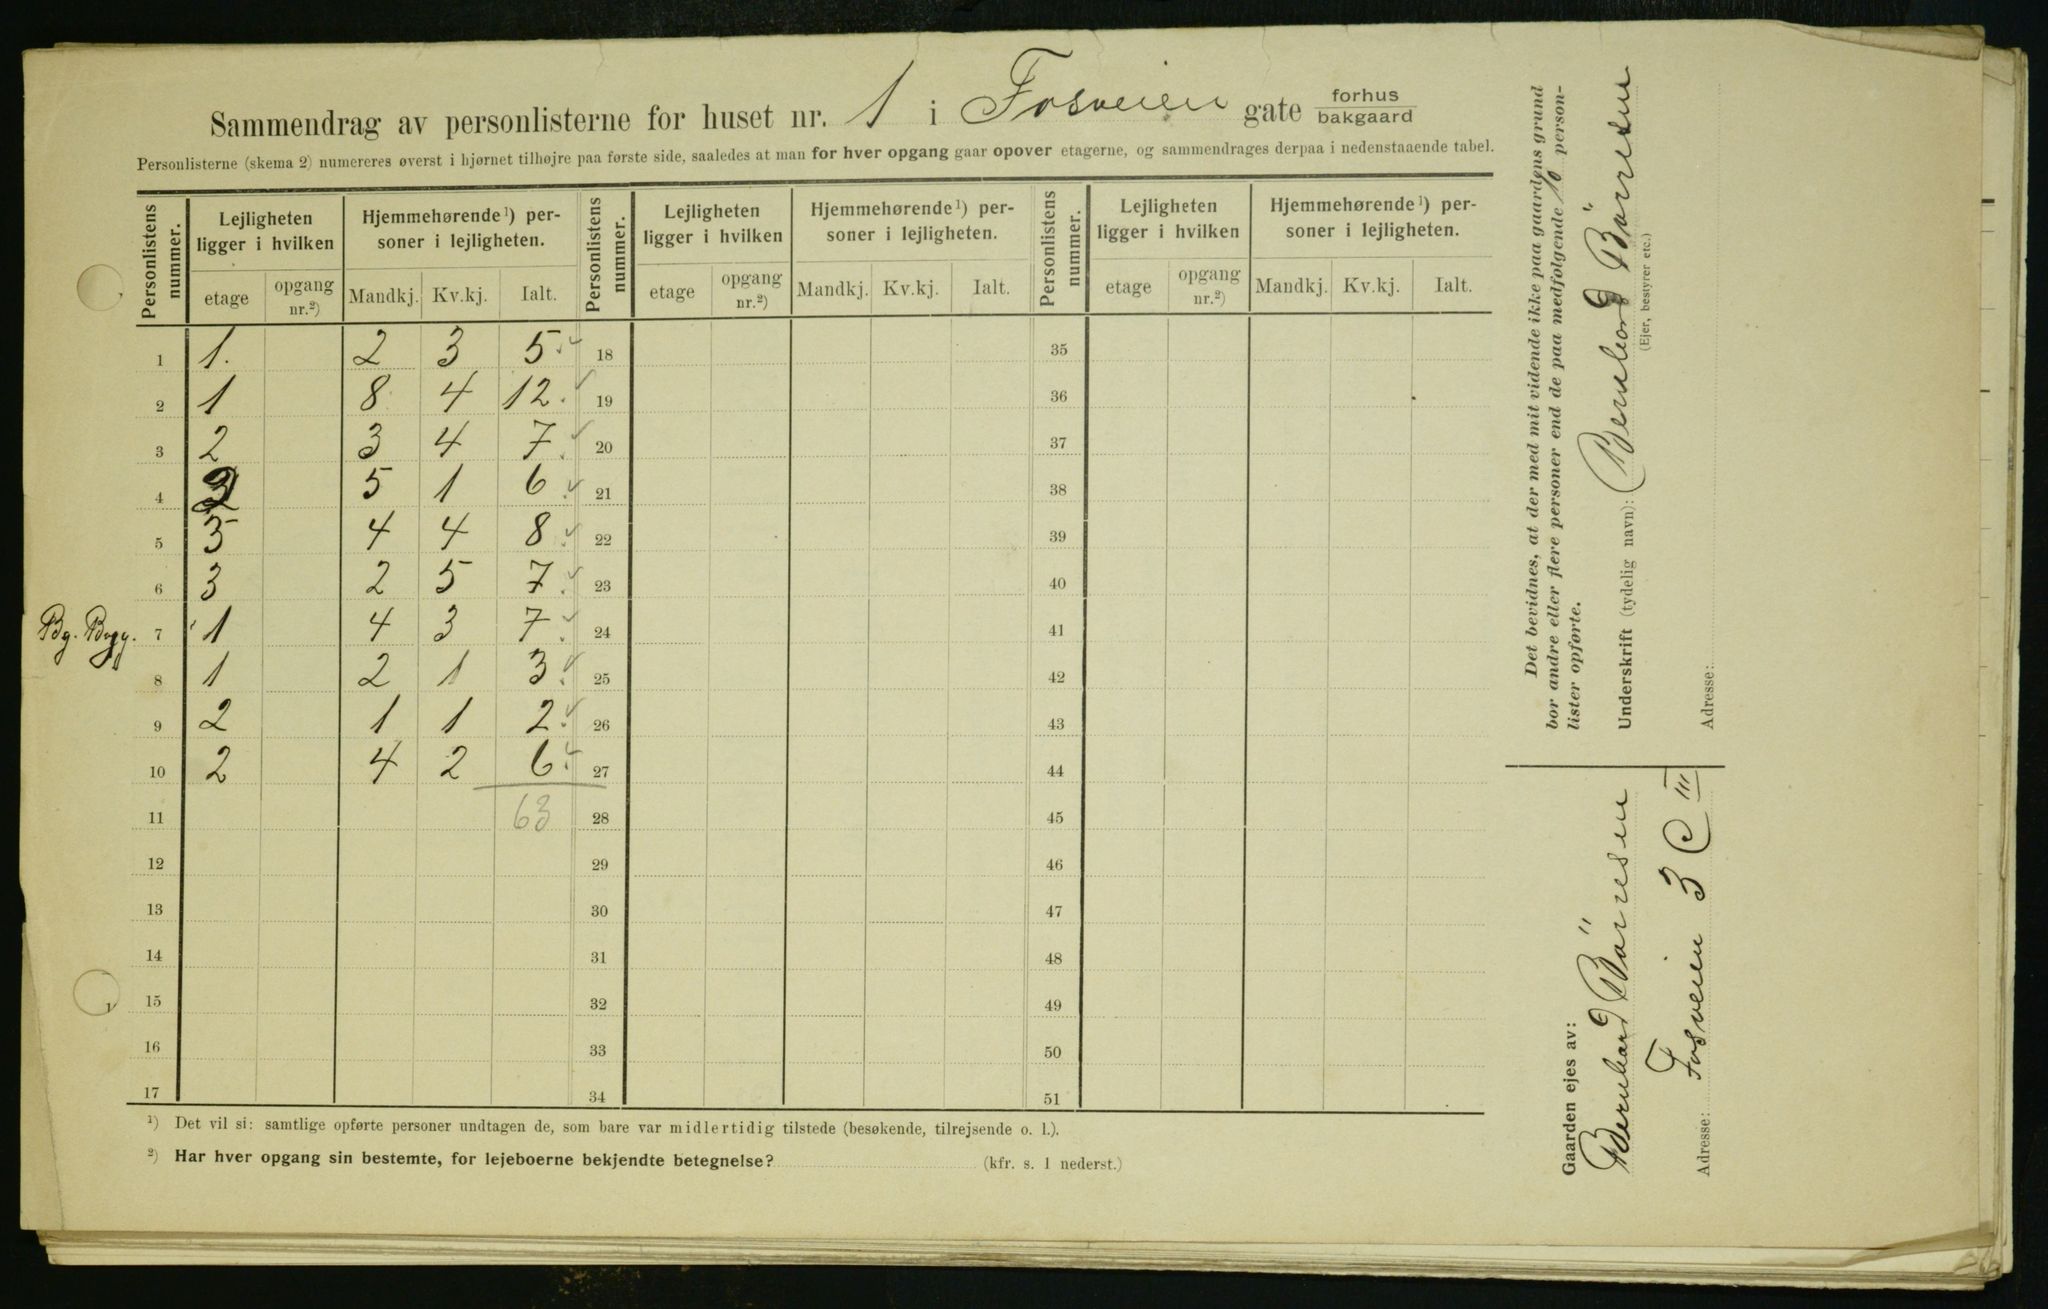 Sammendrag av personlisterne for huset nr. 1 i Fosveien gate forhus bakgaard
Personlisterne (skema 2) numereres øverst i hjørnet tilhøjre paa første side, saaledes at man for hver opgang gaar opover etagerne, og sammendrages derpaa i nedenstaaende tabel.
Personlistens nummer. Lejligheten ligger i hvilken Hjemmehørende ¹) personer i lejligheten. Personlistens nummer. Lejligheten ligger i hvilken Hjemmehørende ¹) personer i lejligheten. Personlistens nummer. Lejligheten ligger i hvilken Hjemmehørende ¹) personer i lejligheten.
etage opgang nr.²) Mandkj. Kv.kj. Ialt. etage opgang nr.²) Mandkj. Kv.kj. Ialt. etage opgang nr.²) Mandkj. Kv.kj. Ialt.
1 1. 2 3 5. 18 35
2 1 8 4 12. 19 36
3 2 3 4 7. 20 37
4 2 5 1 6. 21 38
5 3 4 4 8. 22 39
6 3 2 5 7. 23 40
Bg. Bygg. 7 1 4 3 7. 24 41
8 1 2 1 3. 25 42
9 2 1 1 2. 26 43
10 2 4 2 6. 27 44
11 63 28 45
12 29 46
13 30 47
14 31 48
15 32 49
16 33 50
17 34 51
¹) Det vil si: samtlige opførte personer undtagen de, som bare var midlertidig tilstede (besøkende, tilrejsende o. l.).
²) Har hver opgang sin bestemte, for lejeboerne bekjendte betegnelse? (kfr. s. 1 nederst.)
Det bevidnes, at der med mit vidende ikke paa gaardens grund
bor andre eller flere personer end de paa medfølgende 10 person-
lister opførte.
Underskrift (tydelig navn): Bernhard Börresen
(Ejer, bestyrer etc.)
Adresse:
Gaarden ejes av:
Bernhard Börresen
Adresse: Fosveien 3 C III